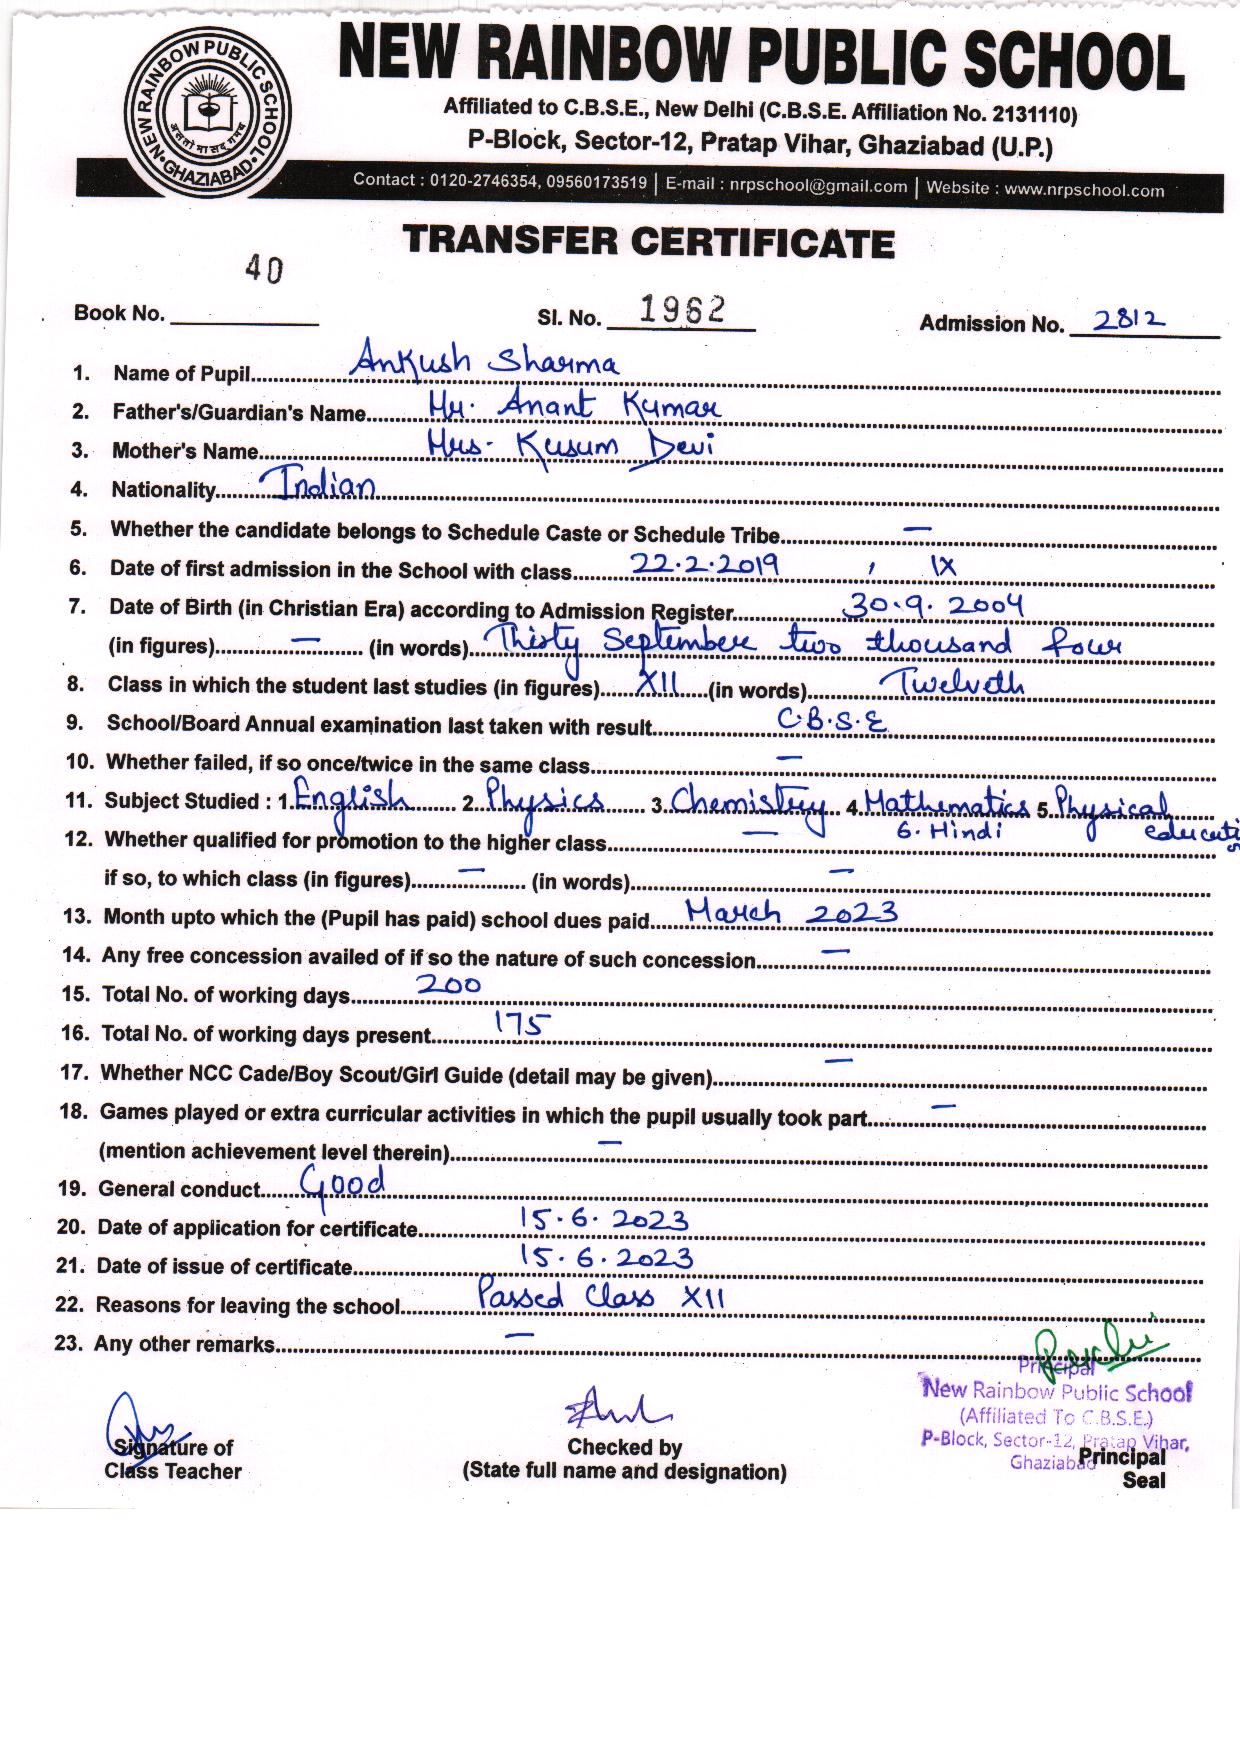 NEW RAINBOW PUBLIC SCHOOL
NEW RAINBOW PUBLIC SCHOOL
•GHAZIABAD•
असतो मा सद् गमय
Affiliated to C.B.S.E., New Delhi (C.B.S.E. Affiliation No. 2131110)
P-Block, Sector-12, Pratap Vihar, Ghaziabad (U.P.)
Contact : 0120-2746354, 09560173519 | E-mail : nrpschool@gmail.com | Website : www.nrpschool.com
TRANSFER CERTIFICATE
Book No. 40 Sl. No. 1962 Admission No. 2812
1. Name of Pupil Ankush Sharma
2. Father's/Guardian's Name Mr. Anant Kumar
3. Mother's Name Mrs. Kusum Devi
4. Nationality Indian
5. Whether the candidate belongs to Schedule Caste or Schedule Tribe —
6. Date of first admission in the School with class 22.2.2019 , IX
7. Date of Birth (in Christian Era) according to Admission Register 30.9.2004
(in figures) — (in words) Thirty September two thousand four
8. Class in which the student last studies (in figures) XII (in words) Twelveth
9. School/Board Annual examination last taken with result C.B.S.E
10. Whether failed, if so once/twice in the same class —
11. Subject Studied : 1. English 2. Physics 3. Chemistry 4. Mathematics 5. Physical
6. Hindi
12. Whether qualified for promotion to the higher class —
if so, to which class (in figures) — (in words) —
13. Month upto which the (Pupil has paid) school dues paid March 2023
14. Any free concession availed of if so the nature of such concession —
15. Total No. of working days 200
16. Total No. of working days present 175
17. Whether NCC Cade/Boy Scout/Girl Guide (detail may be given) —
18. Games played or extra curricular activities in which the pupil usually took part —
(mention achievement level therein) —
19. General conduct Good
20. Date of application for certificate 15.6.2023
21. Date of issue of certificate 15.6.2023
22. Reasons for leaving the school Passed Class XII
23. Any other remarks —
Principal
New Rainbow Public School
(Affiliated To C.B.S.E.)
P-Block, Sector-12, Pratap Vihar,
Ghaziabad
Signature of
Class Teacher
Checked by
(State full name and designation)
Principal
Seal